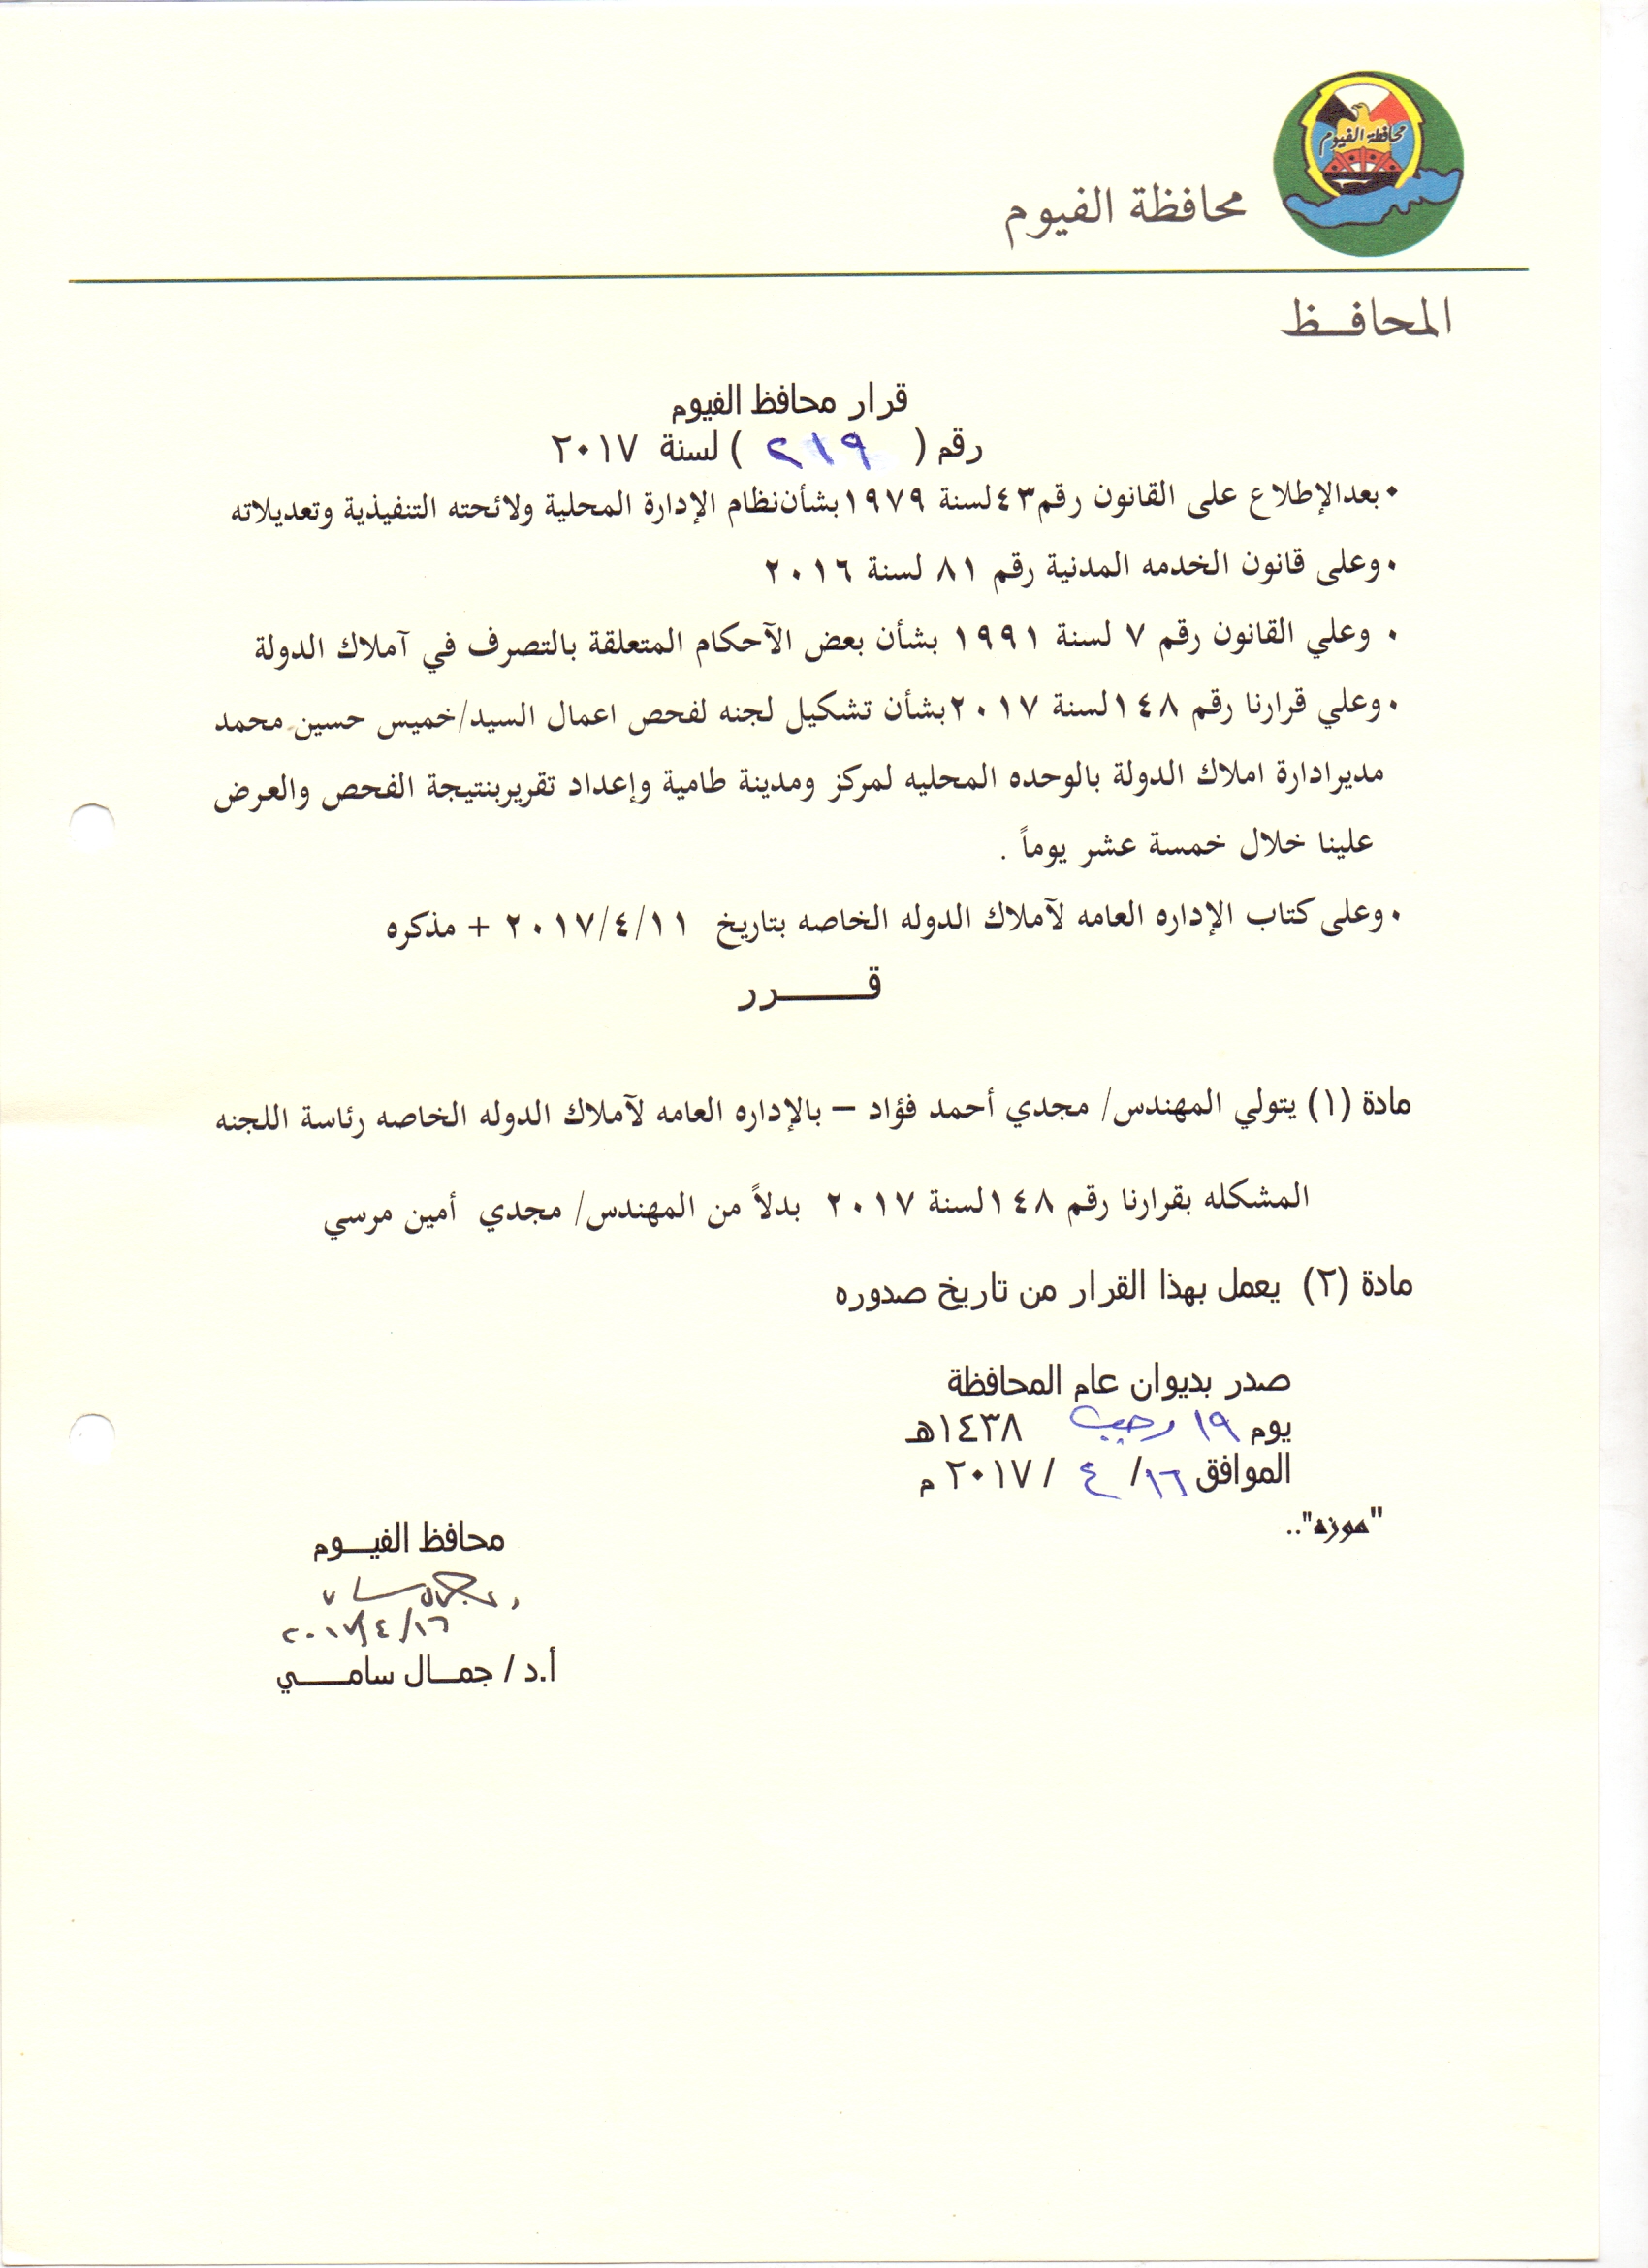 محافظة الفيوم
محافظة الفيوم
المحافــظ
قرار محافظ الفيوم
رقم ( ٢١٩ ) لسنة ٢٠١٧
• بعدالإطلاع على القانون رقم٤٣لسنة ١٩٧٩بشأن‌نظام الإدارة المحلية ولائحته التنفيذية وتعديلاته
• وعلى قانون الخدمه المدنية رقم ٨١ لسنة ٢٠١٦
• وعلي القانون رقم ٧ لسنة ١٩٩١ بشأن بعض الآحكام المتعلقة بالتصرف في آملاك الدولة
• وعلي قرارنا رقم ١٤٨لسنة ٢٠١٧بشأن تشكيل لجنه لفحص اعمال السيد/خميس حسين محمد
مديرادارة املاك الدولة بالوحده المحليه لمركز ومدينة طامية وإعداد تقريربنتيجة الفحص والعرض
علينا خلال خمسة عشر يوماً .
• وعلى كتاب الإداره العامه لآملاك الدوله الخاصه بتاريخ ٢٠١٧/٤/١١ + مذكره
قـــــــرر
مادة (١) يتولي المهندس/ مجدي أحمد فؤاد – بالإداره العامه لآملاك الدوله الخاصه رئاسة اللجنه
المشكله بقرارنا رقم ١٤٨لسنة ٢٠١٧ بدلاً من المهندس/ مجدي أمين مرسي
مادة (٢) يعمل بهذا القرار من تاريخ صدوره
صدر بديوان عام المحافظة
يوم ١٩ رجب ١٤٣٨هـ
الموافق ١٦/ ٤ / ٢٠١٧ م
"موزه"..
محافظ الفيـــوم
٢٠١٧/٤/١٦
أ.د / جمـــال سامـــــي